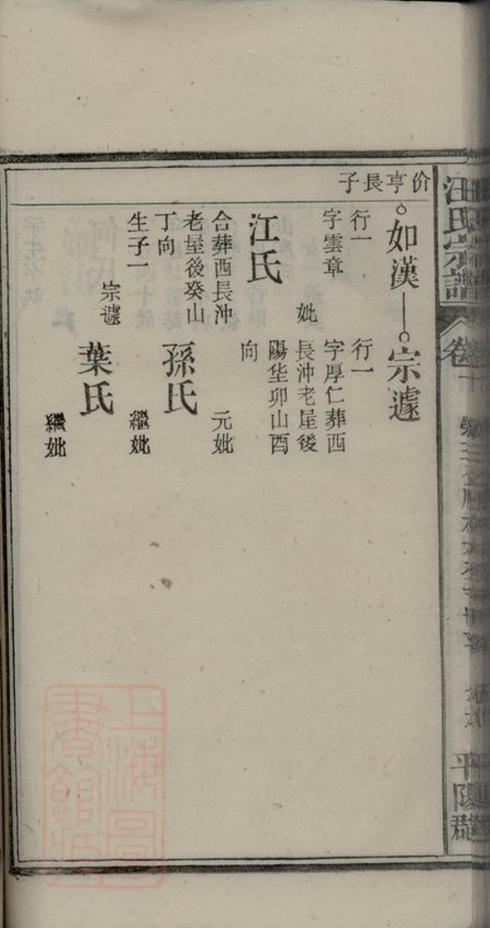 汪氏宗譜
卷
平陽郡
价亨長子
如漢
宗遽
行一
字雲章
妣
江氏
合葬西長沖
老屋後癸山
丁向
生子一
宗遽
行一
字厚仁葬西
長沖老屋後
陽华卯山酉
向
元妣
孫氏
繼妣
葉氏
繼妣
上海圖書館藏